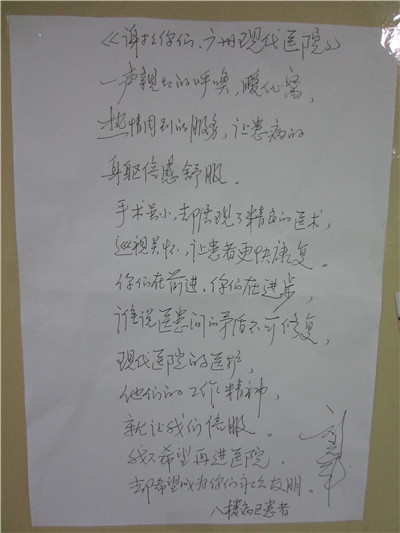 《谢谢你们、广州现代医院》
一声亲切的呼唤,暖心窝,
热情周到的服务,让患病的
身躯倍感舒服。
手术虽小,却体现了精良的医术,
巡视关怀,让患者更快康复。
你们在前进、你们在进步,
谁说医患间的矛盾不可修复,
现代医院的医护,
他们的工作精神,
就让我们信服。
我不希望再进医院.
却希望成为你们永久故朋。
八楼病区患者